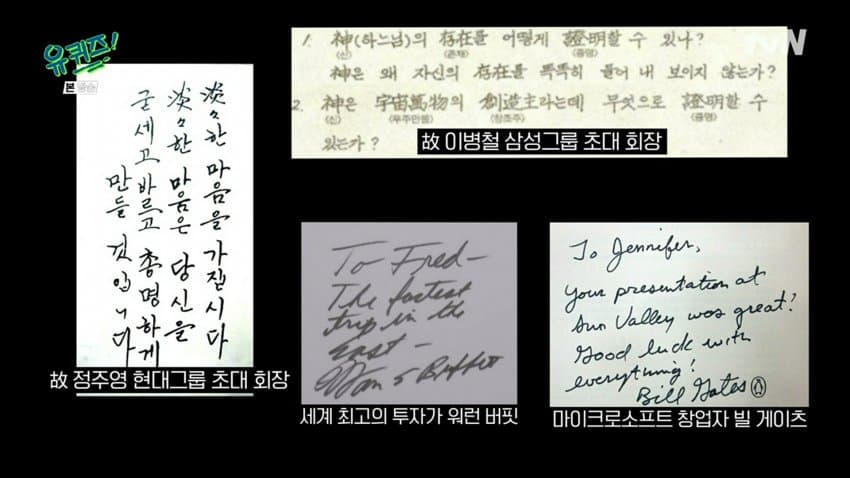 유퀴즈!
본
tvN
淡々한 마음을 가집시다
淡々한 마음은 당신을
굳세고 바르고 총명하게
만들 것입니다
故 정주영 현대그룹 초대 회장
1. 神(하느님)의 存在를 어떻게 證明할 수 있나?
(신) (존재) (증명)
神은 왜 자신의 存在를 똑똑히 들어 내 보이지 않는가?
2. 神은 宇宙萬物의 創造主라는데 무엇으로 證明할 수
(신) (우주만물) (창조주) (증명)
있는가?
故 이병철 삼성그룹 초대 회장
To Fred—
The fastest
trip in the
East—
세계 최고의 투자가 워런 버핏
To Jennifer,
Your presentation at
Sun Valley was great!
Good luck with
everything!
Bill Gates
마이크로소프트 창업자 빌 게이츠